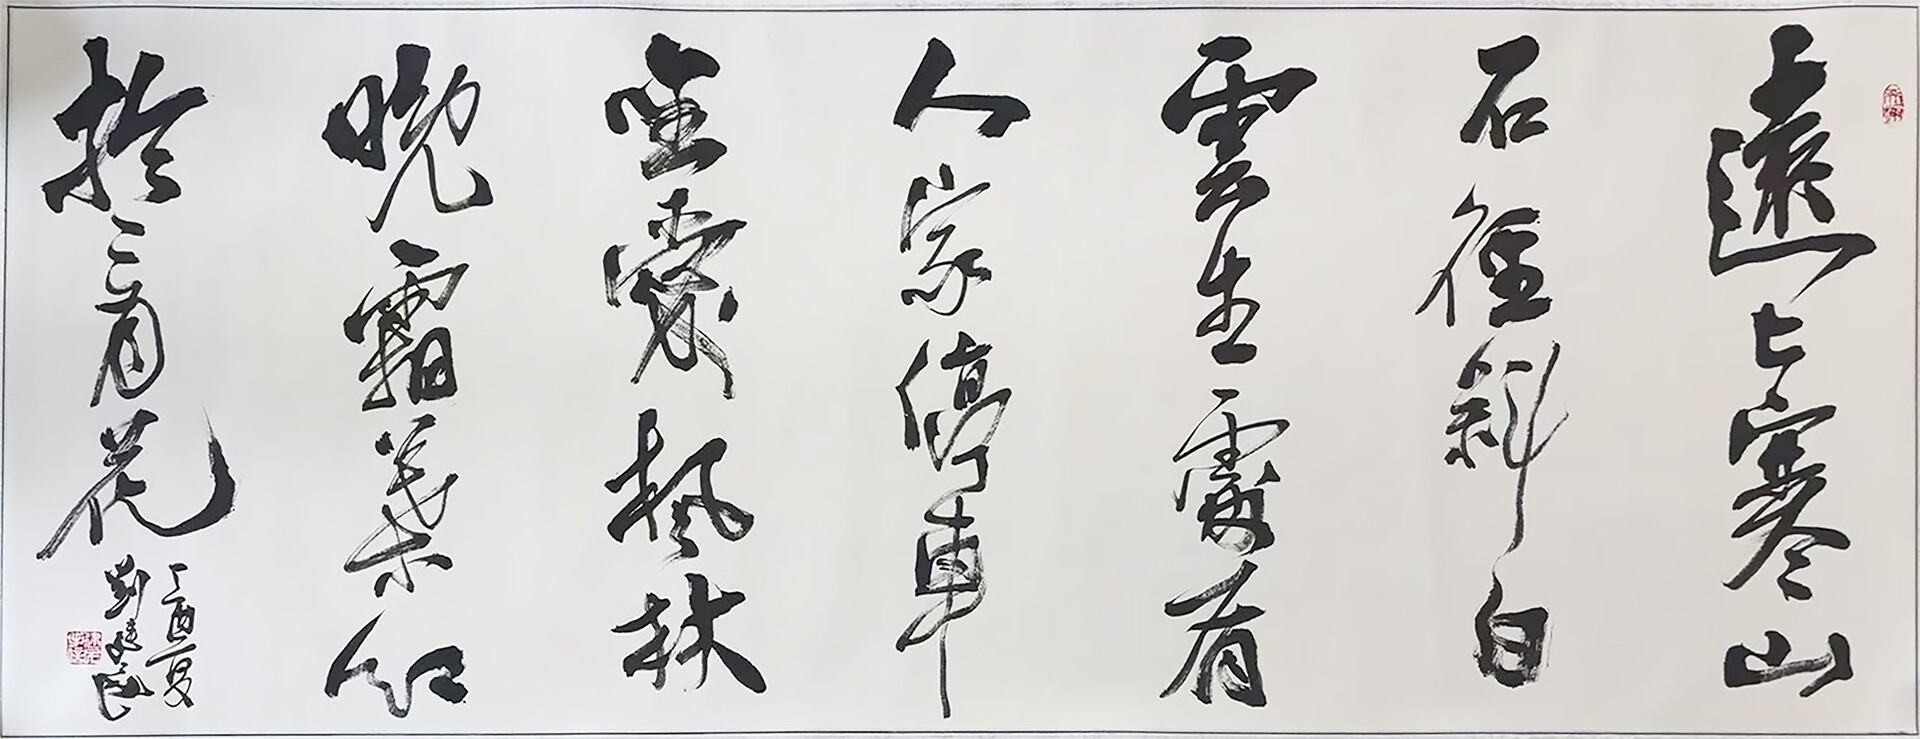 遠上寒山
石徑斜白
雲生處有
人家停車
坐愛楓林
晚霜葉紅
於二月花
丁酉夏